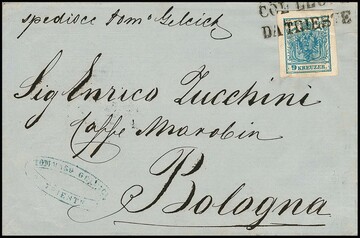 spedisce Tom° Gelcich
COL LLOYD
DA TRIESTE
9 KREUZER
Sig Enrico Zucchini
Caffe Marobin
Bologna
TOMMASO GELCICH
TRIESTE